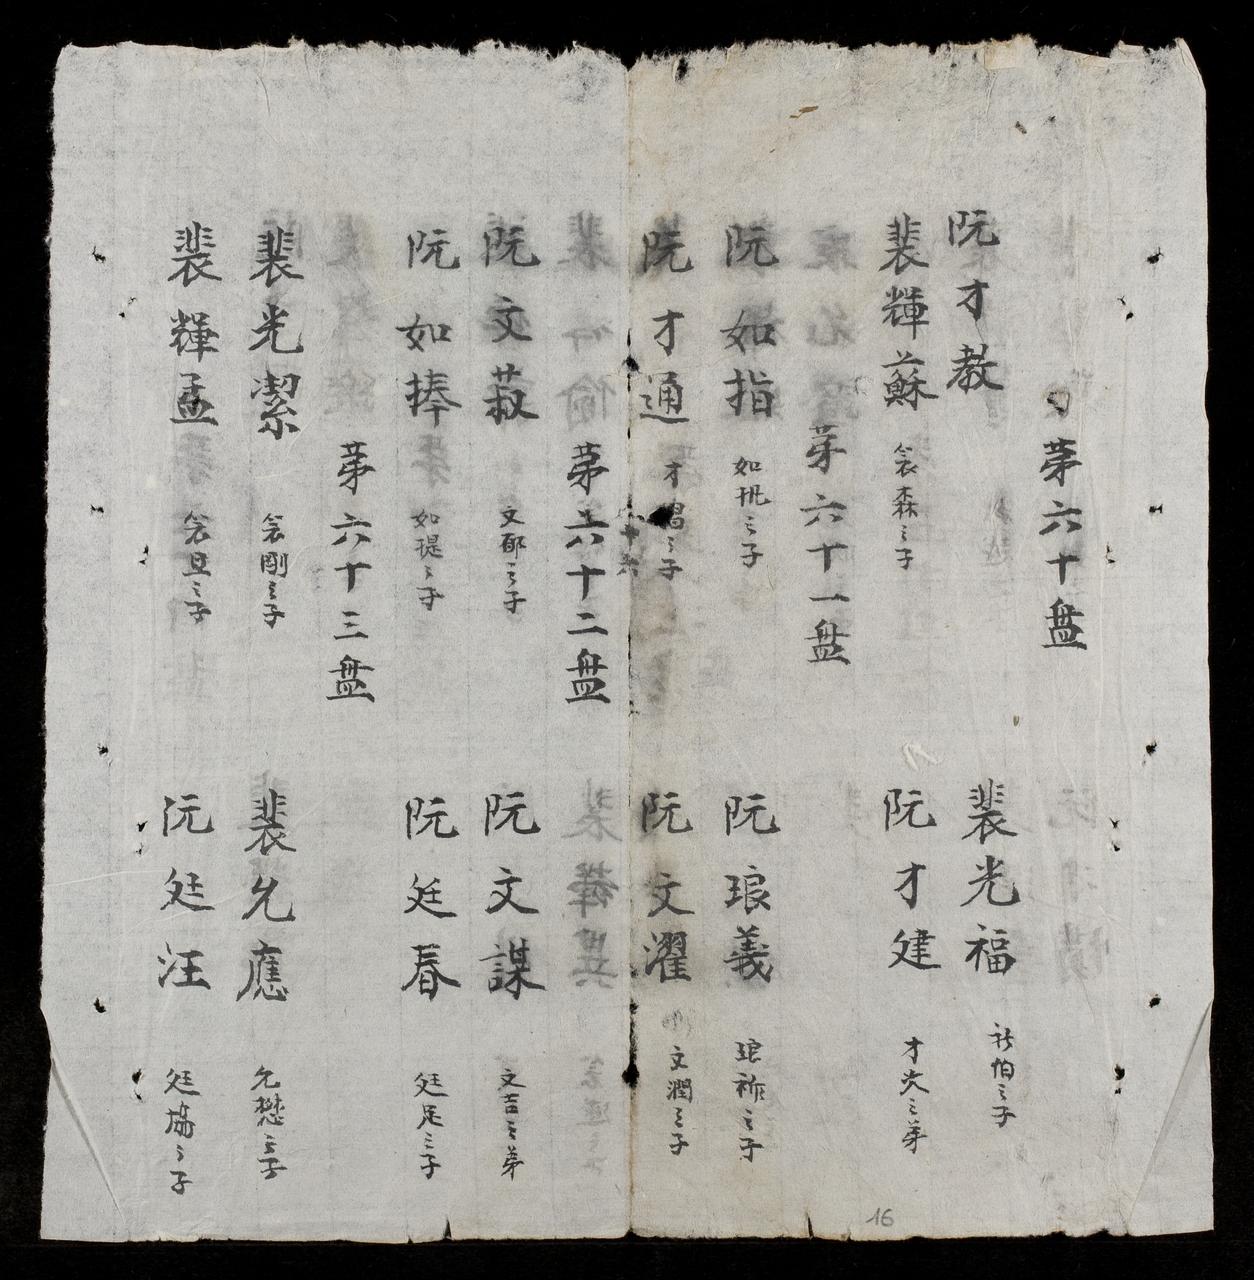 第六十盘
阮才教
裴光福
裴輝蘇 衾森之子
阮才建 才尖之弟
第六十一盘
阮如指 如批之子
阮琅義 琅祚之子
阮才通 才昌之子
阮文濯 文潤之子
第六十二盘
阮文菽 文郁之子
阮文謀 文吉之弟
阮如捧 如瑅之子
阮廷春 廷足之子
第六十三盘
裴光潔 衾剛之子
裴允應 允懋之子
裴輝孟 衾旦之子
阮廷汪 廷協之子
16